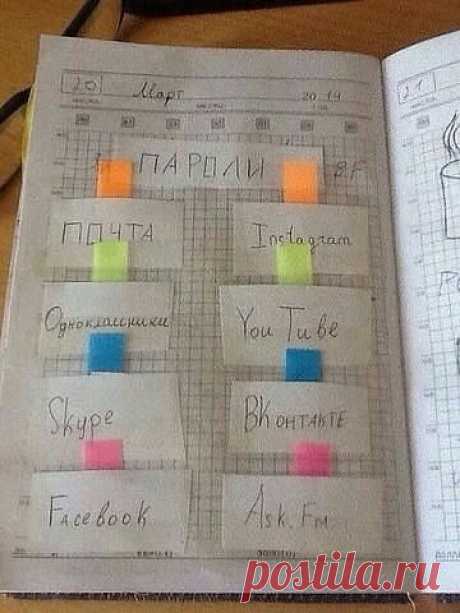 20 Март 2014
21
ПАРОЛИ
ПОЧТА Instagram
Одноклассники You Tube
Skype ВКонтакте
Facebook Ask.Fm
postila.ru